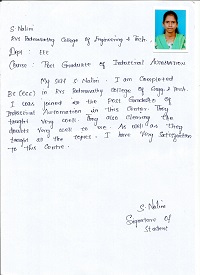 S. Nalini
Sri Padmavathy College of Engineering & Tech,
Dept : EEE
Course : Post Graduate of Industrial Automation
My self S. Nalini. I am Completed
BE (EEE) in Sri Padmavathy College of Engg & Tech.
I was joined as the Post Graduate of
Industrial Automation in this Center. They
taught very well. They also clearing the
doubts very well to me. As well as they
taught all the topics. I have very Satisfaction
to this Centre.
S. Nalini
Signature Of
Student